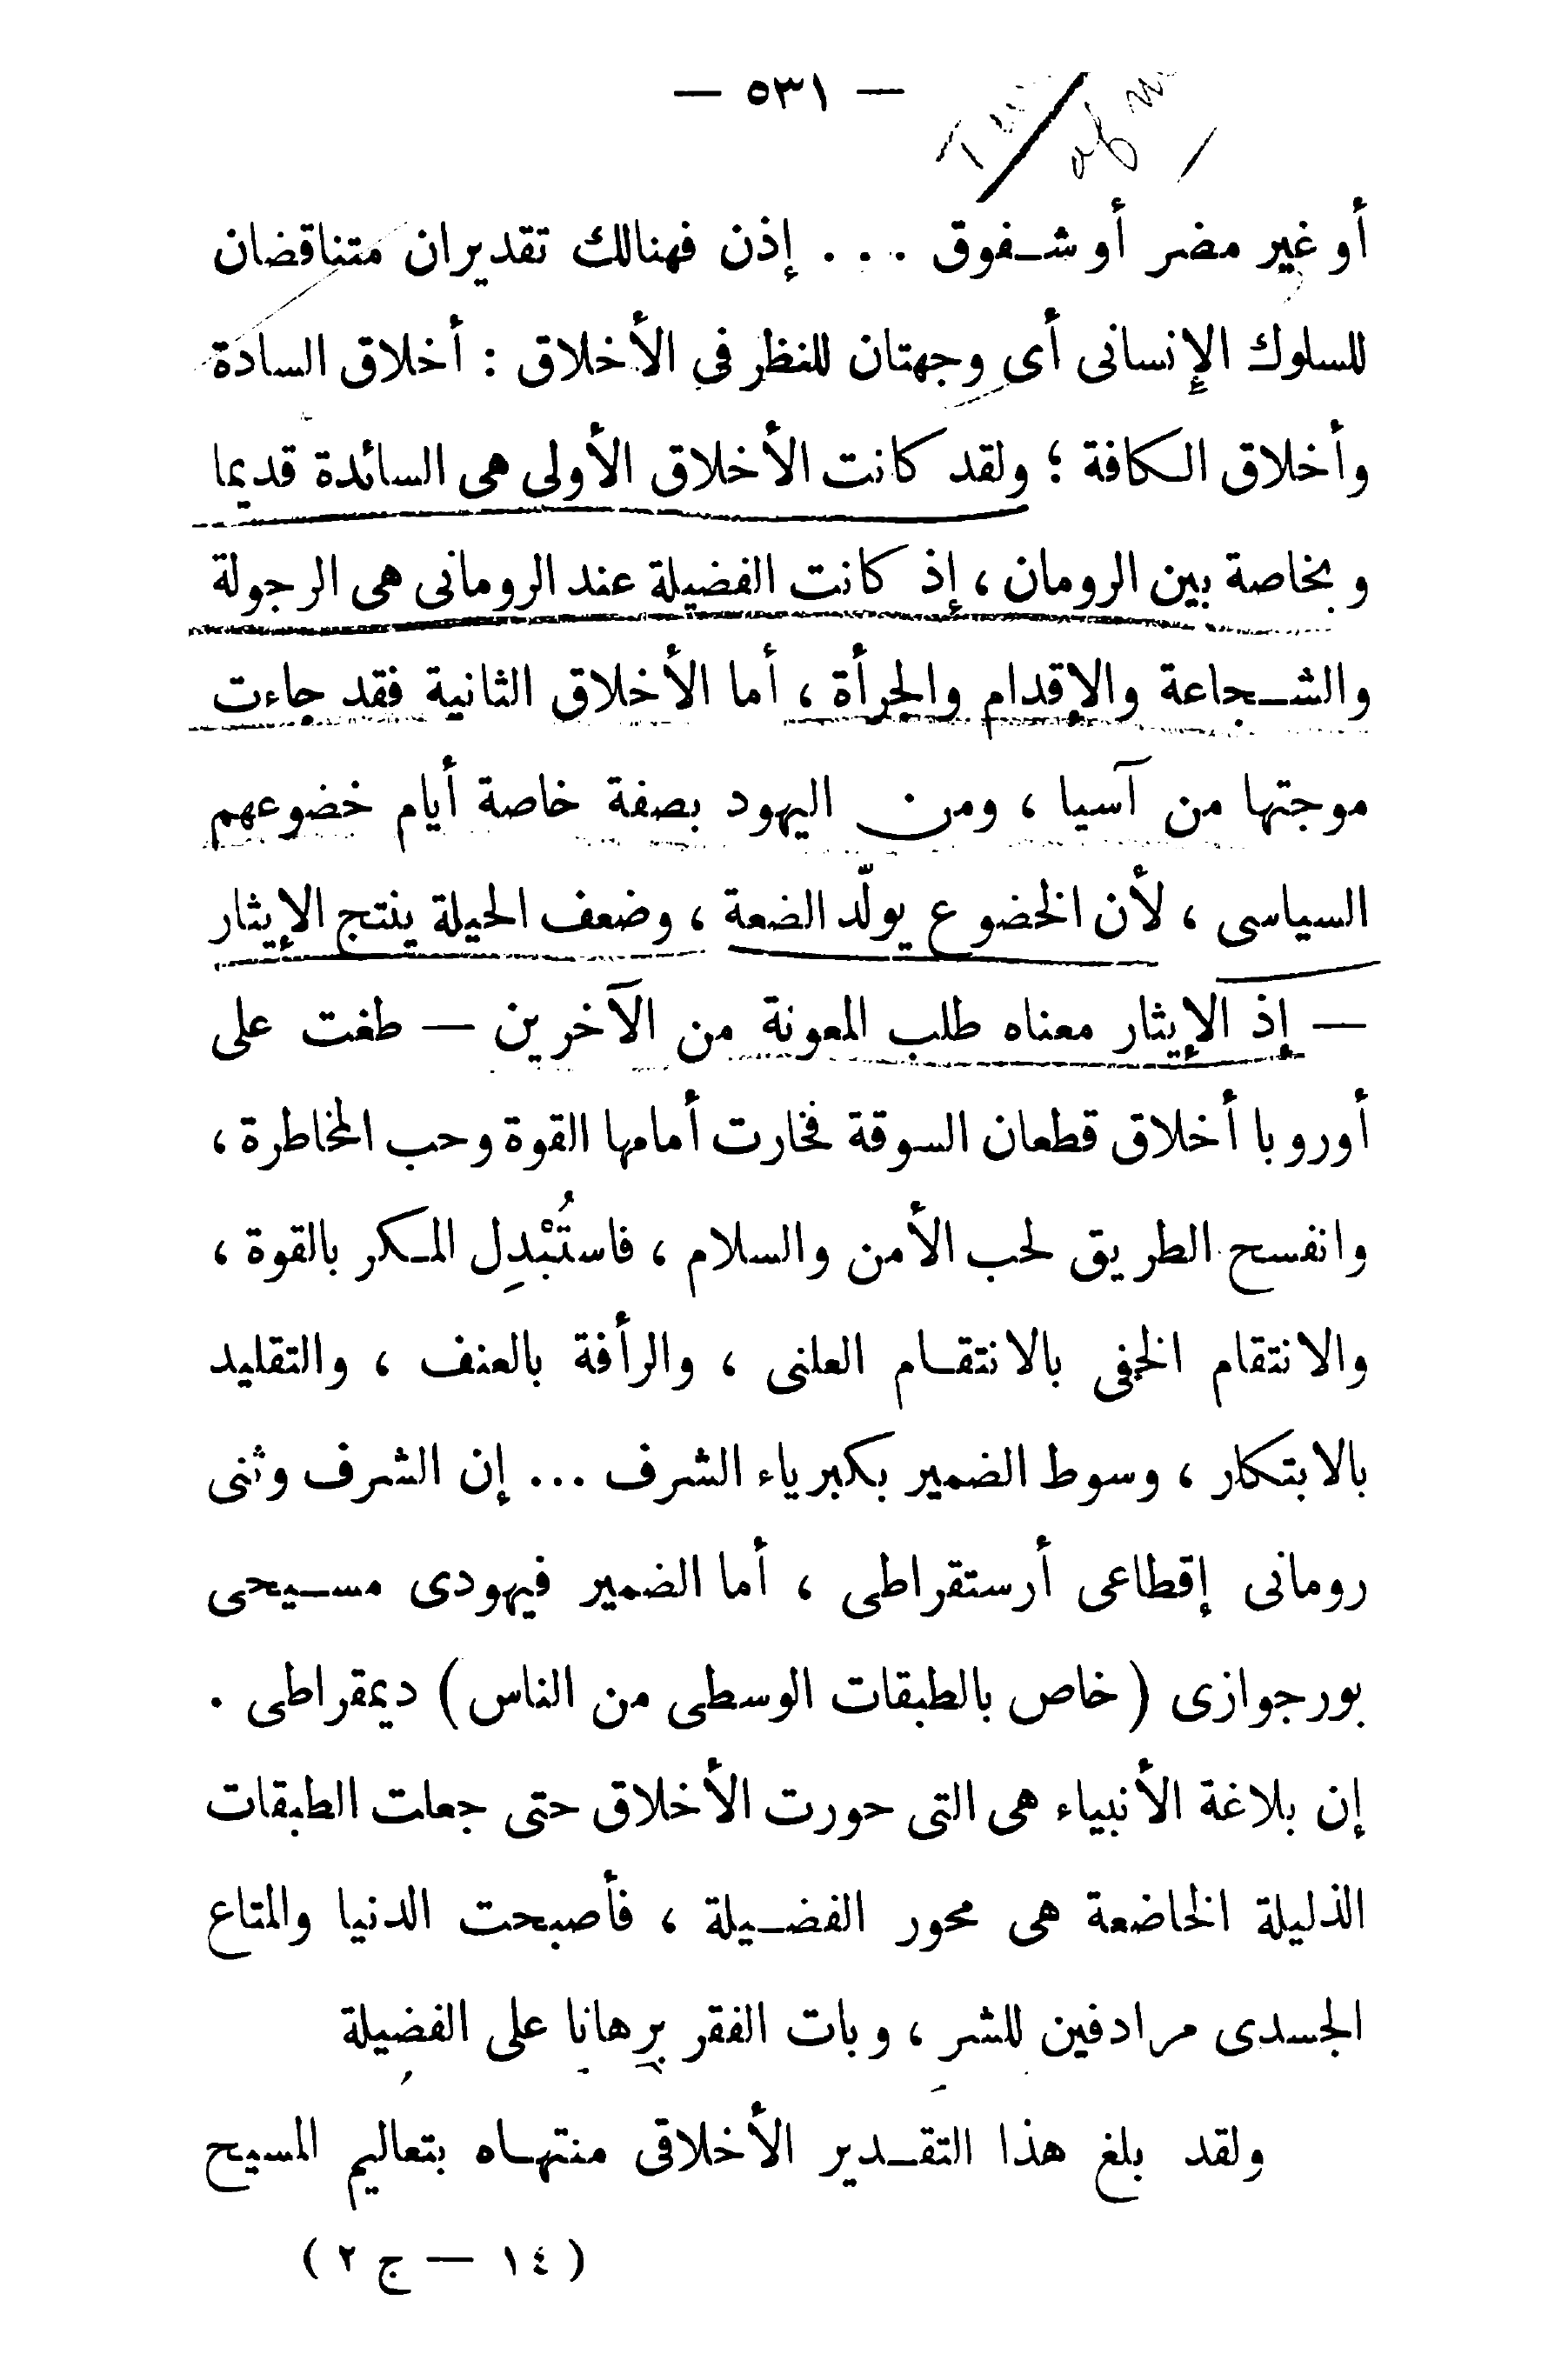 — ٥٣١ —
أو غير مضر أو شفوق . . . إذن فهنالك تقديران متناقضان
للسلوك الإنسانى أى وجهتان للنظر فى الأخلاق : أخلاق السادة
وأخلاق الكافة ؛ ولقد كانت الأخلاق الأولى هى السائدة قديما
وبخاصة بين الرومان ، إذ كانت الفضيلة عند الرومانى هى الرجولة
والشجاعة والإقدام والجرأة ، أما الأخلاق الثانية فقد جاءت
موجتها من آسيا ، ومن اليهود بصفة خاصة أيام خضوعهم
السياسى ، لأن الخضوع يولّد الضعة ، وضعف الحيلة ينتج الإيثار
— إذ الإيثار معناه طلب المعونة من الآخرين — طغت على
أوروبا أخلاق قطعان السوقة فخارت أمامها القوة وحب المخاطرة ،
وانفسح الطريق لحب الأمن والسلام ، فاستُبْدِل المكر بالقوة ،
والانتقام الخفى بالانتقام العلنى ، والرأفة بالعنف ، والتقليد
بالابتكار ، وسوط الضمير بكبرياء الشرف ... إن الشرف وثنى
رومانى إقطاعى أرستقراطى ، أما الضمير فيهودى مسيحى
بورجوازى ( خاص بالطبقات الوسطى من الناس ) ديمقراطى .
إن بلاغة الأنبياء هى التى حورت الأخلاق حتى جعلت الطبقات
الذليلة الخاضعة هى محور الفضيلة ، فأصبحت الدنيا والمتاع
الجسدى مرادفين للشر ، وبات الفقر برهانا على الفضيلة
ولقد بلغ هذا التقدير الأخلاقى منتهاه بتعاليم المسيح
( ١٤ — ج ٢ )